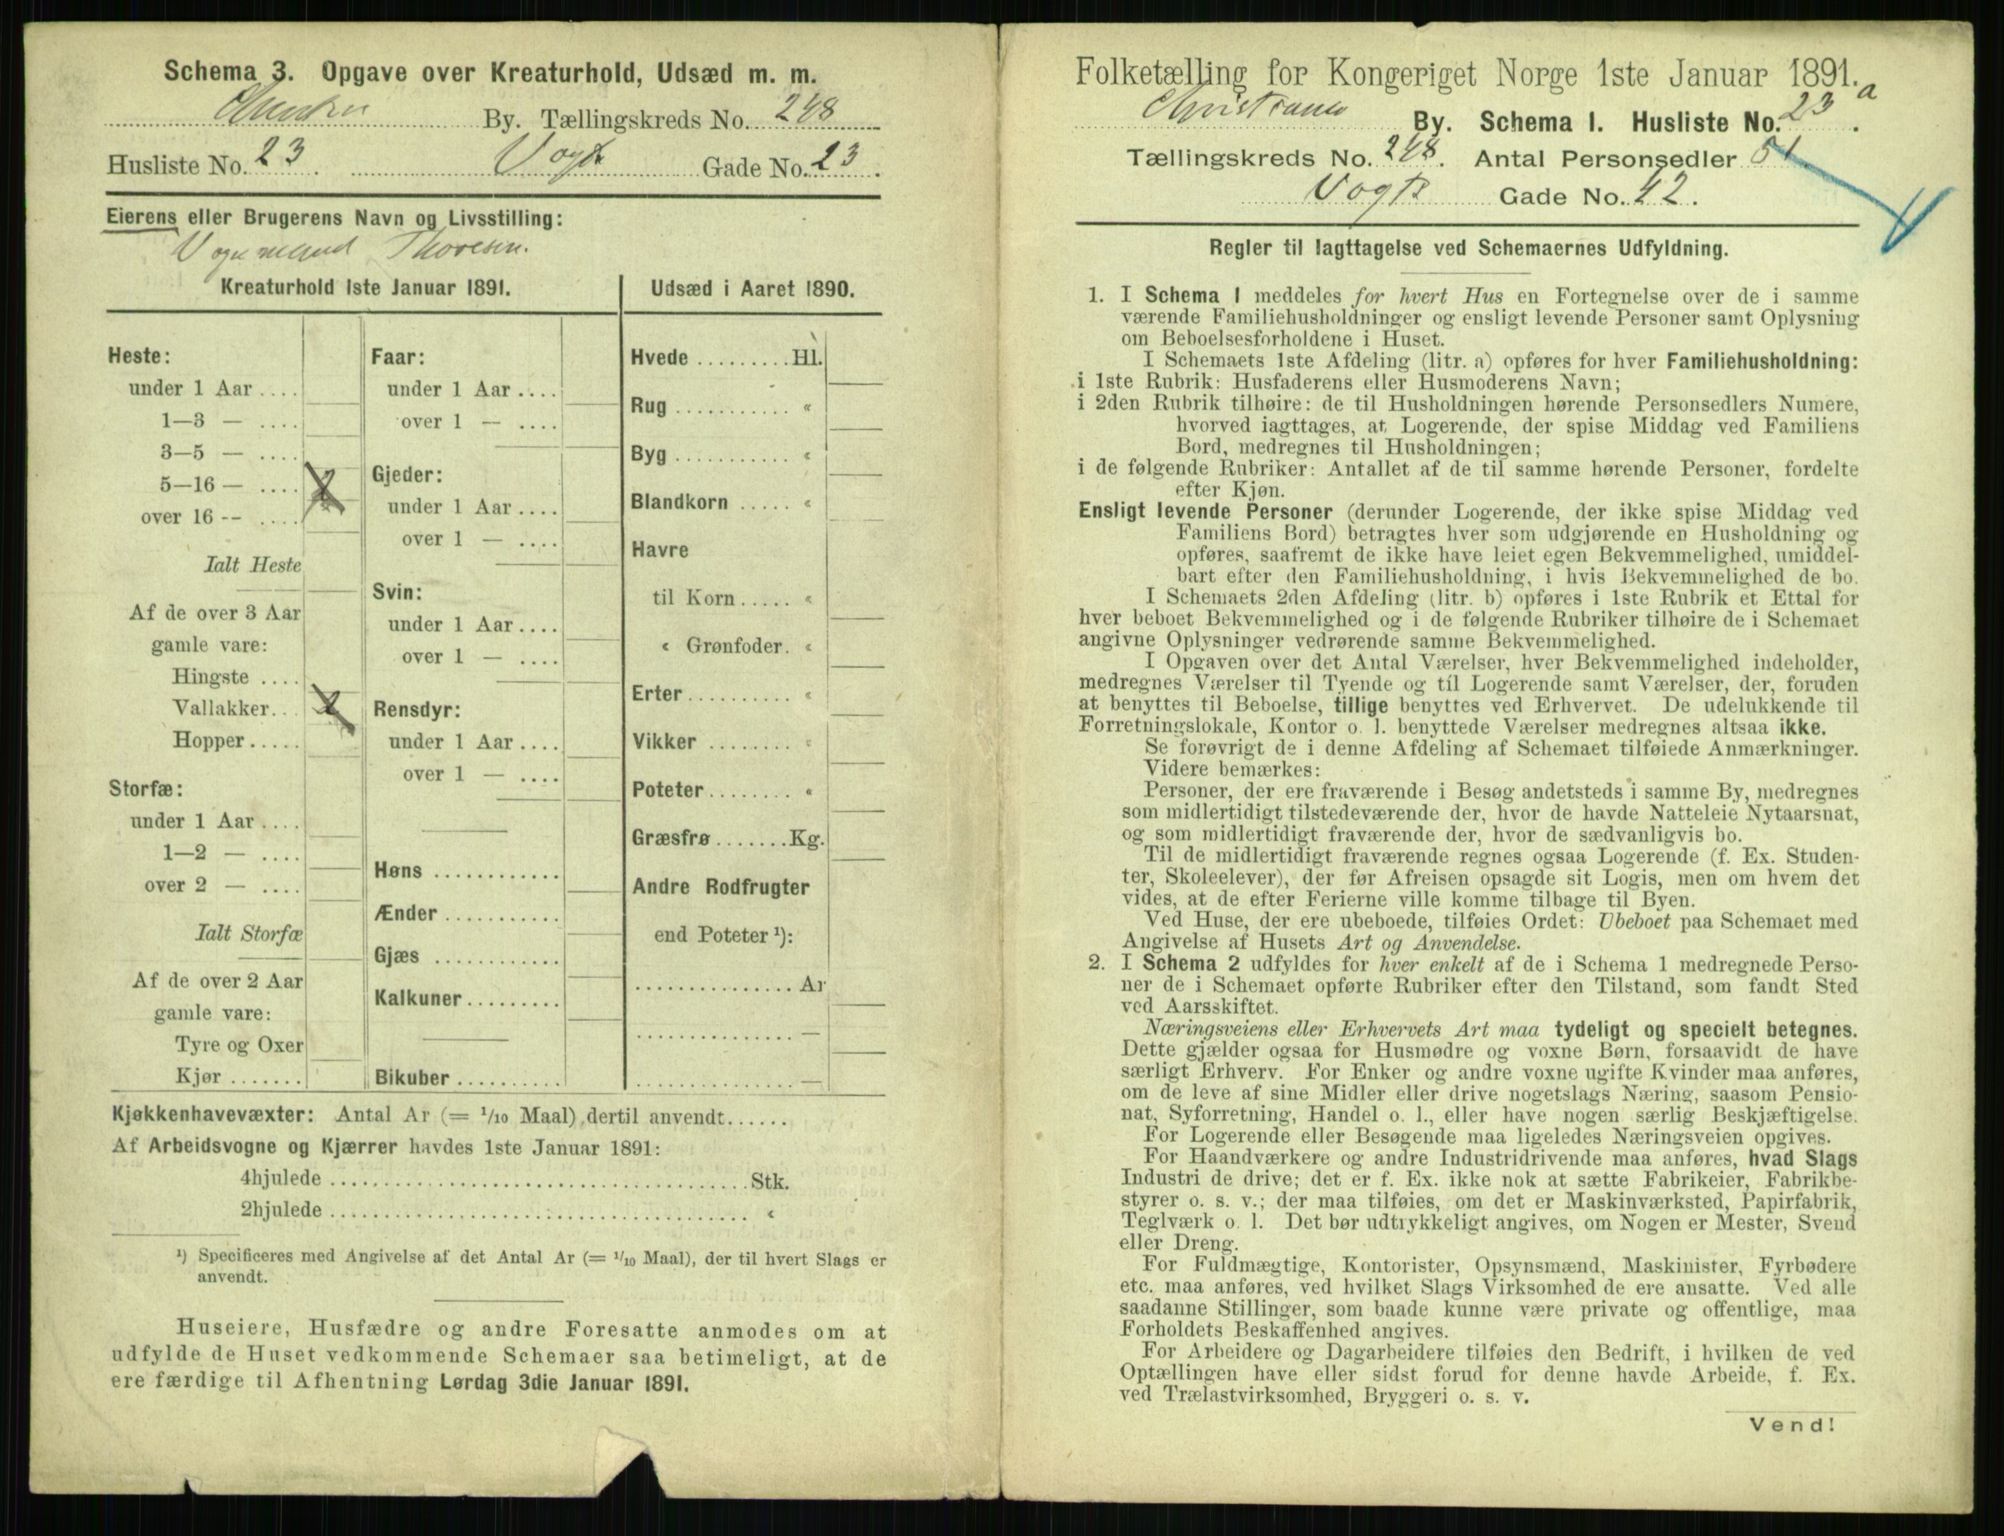 Schema 3. Opgave over Kreaturhold, Udsæd m. m.
By. Tællingskreds No. 248
Husliste No. 23 Vogts Gade No. 23.
Eierens eller Brugerens Navn og Livsstilling:
Vognmand Thoresen.
Kreaturhold 1ste Januar 1891.
Heste:
under 1 Aar ....
1—3 — ....
3—5 — ....
5—16 — .... 2
over 16 -- ....
Ialt Heste
Af de over 3 Aar
gamle vare:
Hingste ....
Vallakker... 2
Hopper .....
Storfæ:
under 1 Aar ....
1—2 — ....
over 2 — ....
Ialt Storfæ
Af de over 2 Aar
gamle vare:
Tyre og Oxer
Kjør .......
Faar:
under 1 Aar ....
over 1 — ....
Gjeder:
under 1 Aar ....
over 1 — ....
Svin:
under 1 Aar ....
over 1 — ....
Rensdyr:
under 1 Aar ....
over 1 — ....
Høns ............
Ænder ...........
Gjæs ............
Kalkuner .........
Bikuber ..........
Udsæd i Aaret 1890.
Hvede ......... Hl.
Rug ........... «
Byg ........... «
Blandkorn ..... «
Havre
til Korn ..... «
« Grønfoder. «
Erter .......... «
Vikker ........ «
Poteter ........ «
Græsfrø ....... Kg.
Andre Rodfrugter
end Poteter ¹):
............... Ar
............... —
............... —
Kjøkkenhavevæxter: Antal Ar (= 1/10 Maal) dertil anvendt......
Af Arbeidsvogne og Kjærrer havdes 1ste Januar 1891:
4hjulede ........................................ Stk.
2hjulede ........................................ «
¹) Specificeres med Angivelse af det Antal Ar (= 1/10 Maal), der til hvert Slags er
anvendt.
Huseiere, Husfædre og andre Foresatte anmodes om at
udfylde de Huset vedkommende Schemaer saa betimeligt, at de
ere færdige til Afhentning Lørdag 3die Januar 1891.
Folketælling for Kongeriget Norge 1ste Januar 1891.
Christiania By. Schema 1. Husliste No. 23 a
Tællingskreds No. 248. Antal Personsedler 51
Vogts Gade No. 42.
Regler til Iagttagelse ved Schemaernes Udfyldning.
1. I Schema 1 meddeles for hvert Hus en Fortegnelse over de i samme
værende Familiehusholdninger og ensligt levende Personer samt Oplysning
om Beboelsesforholdene i Huset.
I Schemaets 1ste Afdeling (litr. a) opføres for hver Familiehusholdning:
i 1ste Rubrik: Husfaderens eller Husmoderens Navn;
i 2den Rubrik tilhøire: de til Husholdningen hørende Personsedlers Numere,
hvorved iagttages, at Logerende, der spise Middag ved Familiens
Bord, medregnes til Husholdningen;
i de følgende Rubriker: Antallet af de til samme hørende Personer, fordelte
efter Kjøn.
Ensligt levende Personer (derunder Logerende, der ikke spise Middag ved
Familiens Bord) betragtes hver som udgjørende en Husholdning og
opføres, saafremt de ikke have leiet egen Bekvemmelighed, umiddel-
bart efter den Familiehusholdning, i hvis Bekvemmelighed de bo.
I Schemaets 2den Afdeling (litr. b) opføres i 1ste Rubrik et Ettal for
hver beboet Bekvemmelighed og i de følgende Rubriker tilhøire de i Schemaet
angivne Oplysninger vedrørende samme Bekvemmelighed.
I Opgaven over det Antal Værelser, hver Bekvemmelighed indeholder,
medregnes Værelser til Tyende og til Logerende samt Værelser, der, foruden
at benyttes til Beboelse, tillige benyttes ved Erhvervet. De udelukkende til
Forretningslokale, Kontor o. l. benyttede Værelser medregnes altsaa ikke.
Se forøvrigt de i denne Afdeling af Schemaet tilføiede Anmærkninger.
Videre bemærkes:
Personer, der ere fraværende i Besøg andetsteds i samme By, medregnes
som midlertidigt tilstedeværende der, hvor de havde Natteleie Nytaarsnat,
og som midlertidigt fraværende der, hvor de sædvanligvis bo.
Til de midlertidigt fraværende regnes ogsaa Logerende (f. Ex. Studen-
ter, Skoleelever), der før Afreisen opsagde sit Logis, men om hvem det
vides, at de efter Ferierne ville komme tilbage til Byen.
Ved Huse, der ere ubeboede, tilføies Ordet: Ubeboet paa Schemaet med
Angivelse af Husets Art og Anvendelse.
2. I Schema 2 udfyldes for hver enkelt af de i Schema 1 medregnede Perso-
ner de i Schemaet opførte Rubriker efter den Tilstand, som fandt Sted
ved Aarsskiftet.
Næringsveiens eller Erhvervets Art maa tydeligt og specielt betegnes.
Dette gjælder ogsaa for Husmødre og voxne Børn, forsaavidt de have
særligt Erhverv. For Enker og andre voxne ugifte Kvinder maa anføres,
om de leve af sine Midler eller drive nogetslags Næring, saasom Pensio-
nat, Syforretning, Handel o. l., eller have nogen særlig Beskjæftigelse.
For Logerende eller Besøgende maa ligeledes Næringsveien opgives.
For Haandværkere og andre Industridrivende maa anføres, hvad Slags
Industri de drive; det er f. Ex. ikke nok at sætte Fabrikeier, Fabrikbe-
styrer o. s. v.; der maa tilføies, om det er Maskinværksted, Papirfabrik,
Teglværk o. l. Det bør udtrykkeligt angives, om Nogen er Mester, Svend
eller Dreng.
For Fuldmægtige, Kontorister, Opsynsmænd, Maskinister, Fyrbødere
etc. maa anføres, ved hvilket Slags Virksomhed de ere ansatte. Ved alle
saadanne Stillinger, som baade kunne være private og offentlige, maa
Forholdets Beskaffenhed angives.
For Arbeidere og Dagarbeidere tilføies den Bedrift, i hvilken de ved
Optællingen have eller sidst forud for denne havde Arbeide, f. Ex.
ved Trælastvirksomhed, Bryggeri o. s. v.
Vend!